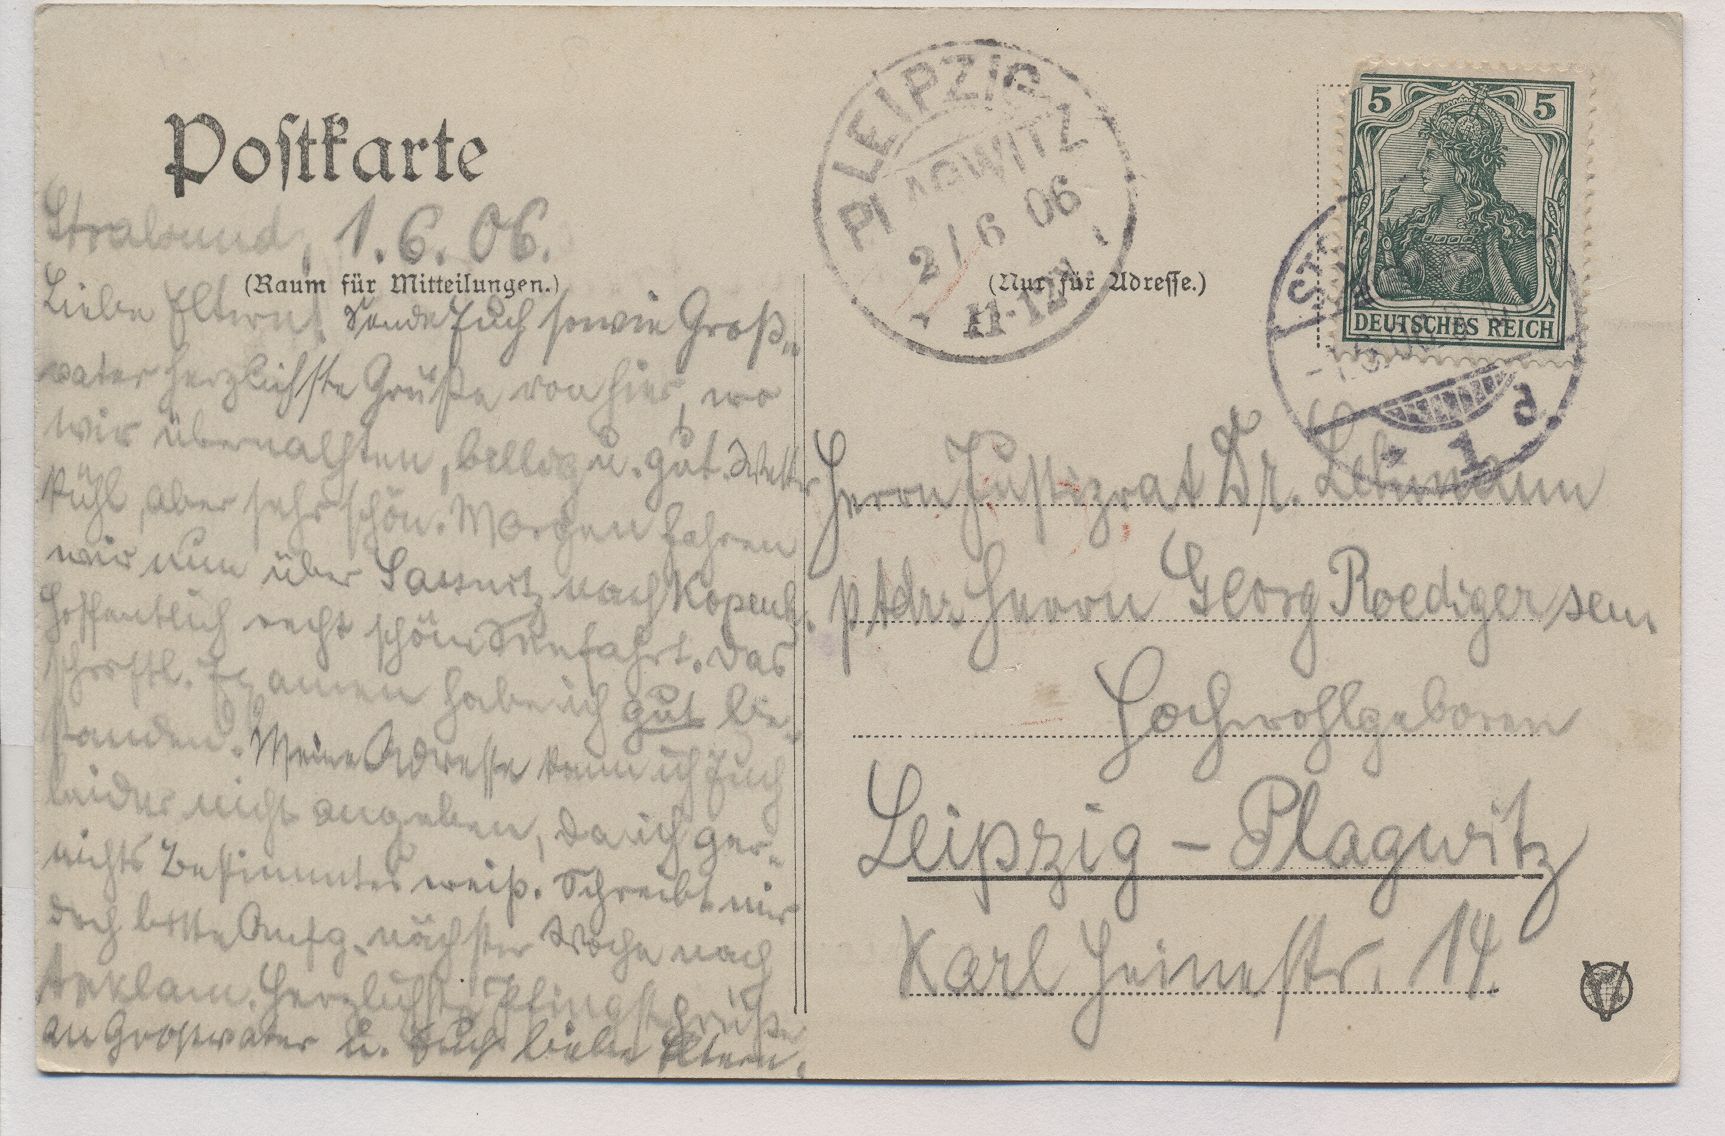 Postkarte
Stralsund, 1.6.06.
(Raum für Mitteilungen.)
Liebe Eltern! Sende Euch sowie Groß-
vater herzlichste Grüße von hier, wo
wir übernachten, billig u. gut. Wetter
kühl, aber sehr schön. Morgen fahren
wir nun über Sassnitz nach Kopenh.
Hoffentlich recht schöne Seefahrt. Das
schriftl. Examen habe ich gut be-
standen. Meine Adresse kann ich Euch
leider nicht angeben, da ich gar-
nichts Bestimmtes weiß. Schreibt mir
doch bitte Anfg. nächster Woche nach
Herzlichste Pfingstgrüße
an Grossvater u. Euch liebe Eltern.
LEIPZIG
PLAGWITZ
2/6 06
11-12V.
(Nur für Adresse.)
5 5
DEUTSCHES REICH
1 d
Herrn Justizrat Dr. Lehmann
p Adr. Herrn Georg Roediger sen.
Hochwohlgeboren
Leipzig - Plagwitz
Karl Heinestr. 14.